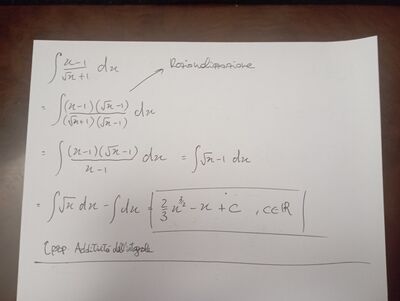 ∫ x-1/√x+1 dx Razionalizzazione
= ∫ (x-1)(√x-1)/(√x+1)(√x-1) dx
= ∫ (x-1)(√x-1)/x-1 dx = ∫ √x-1 dx
= ∫ √x dx - ∫ dx = 2/3 x^3/2 - x + C , C∈ℝ
prop. Additività dell'integrale